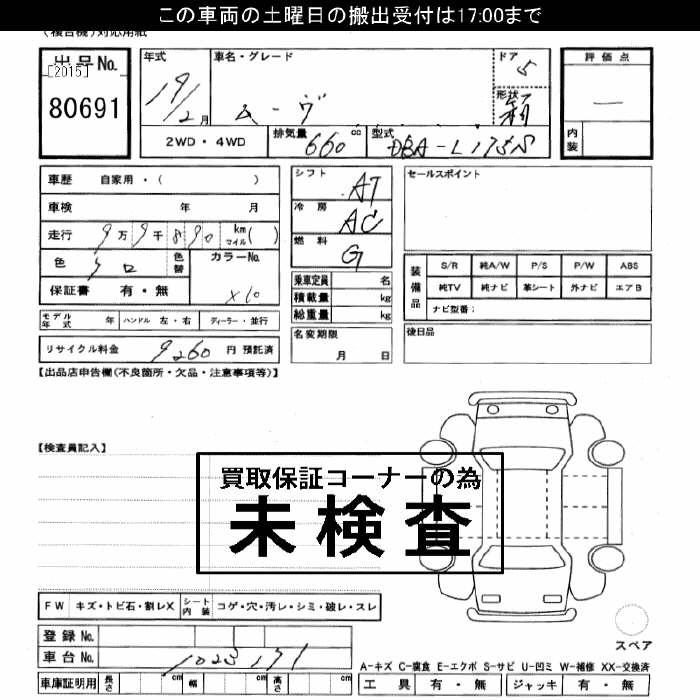 この車両の土曜日の搬出受付は17:00まで
(複合機)対応用紙
出品No.
[2015]
80691
年式
19/2月
車名・グレード
ムーヴ
ドア
5
形状
評価点
—
内装
2WD・4WD
排気量 660 cc
型式 DBA-L175S
車歴 自家用・( )
車検 年 月
走行 9万9千890 km マイル( )
色 シロ
色替
カラーNo.
X10
保証書 有・無
モデル年式 年 ハンドル 左・右 ディーラー・並行
リサイクル料金 9260 円 預託済
シフト AT
冷房 AC
燃料 G
乗車定員 名
積載量 kg
総重量 kg
名変期限
月 日
セールスポイント
装備品
S/R 純A/W P/S P/W ABS
純TV 純ナビ 革シート 外ナビ エアB
ナビ型番:
後日品
【出品店申告欄(不良箇所・欠品・注意事項等)】
【検査員記入】
買取保証コーナーの為
未検査
FW キズ・トビ石・割レX シート内装 コゲ・穴・汚レ・シミ・破レ・スレ
登録No.
車台No. 1023171
車庫証明用 長さ cm 幅 cm 高さ cm
スペア
A-キズ C-腐食 E-エクボ S-サビ U-凹ミ W-補修 XX-交換済
工具 有・無 ジャッキ 有・無